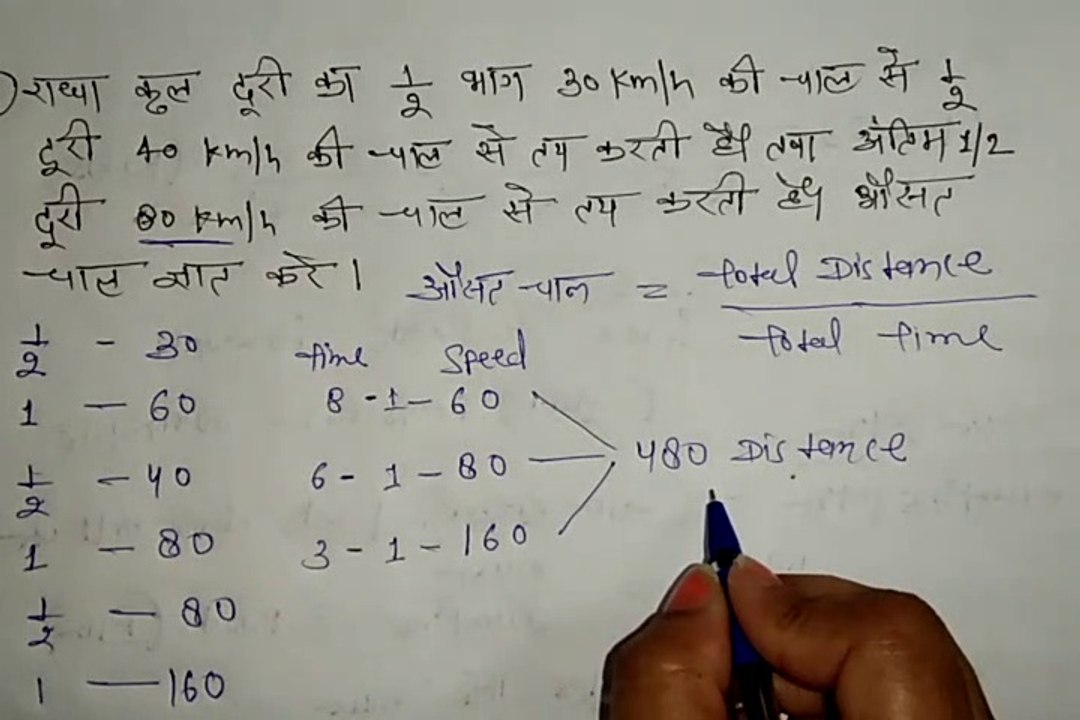 ) राधा कुल दूरी का 1/2 भाग 30 km/h की चाल से 1/2
दूरी 40 km/h की चाल से तय करती है। तथा अंतिम 1/2
दूरी 80 km/h की चाल से तय करती है। औसत
चाल ज्ञात करें।
औसत चाल = total Distance / total time
1/2 - 30
1 - 60
1/2 - 40
1 - 80
1/2 - 80
1 - 160
time speed
8 - 1 - 60
6 - 1 - 80
3 - 1 - 160
480 Distance